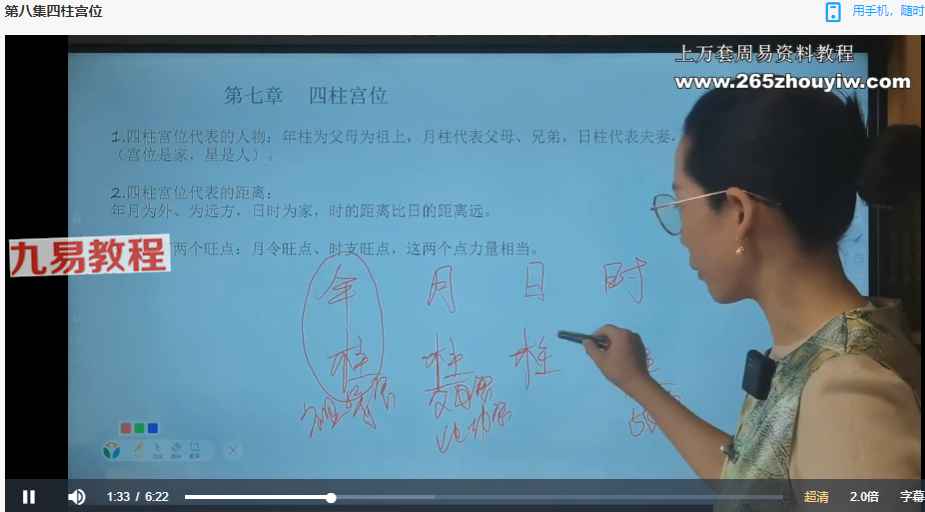 第八集四柱宫位
用手机，随时
上万套周易资料教程
www.265zhouyiw.com
第七章 四柱宫位
1.四柱宫位代表的人物：年柱为父母为祖上，月柱代表父母、兄弟，日柱代表夫妻，
（宫位是家，星是人）。
2.四柱宫位代表的距离：
年月为外、为远方，日时为家，时的距离比日的距离远。
九易教程
两个旺点：月令旺点、时支旺点，这两个点力量相当。
年 月 日 时
柱 柱 柱
父母宫
1:33 / 6:22
超清
2.0倍
字幕